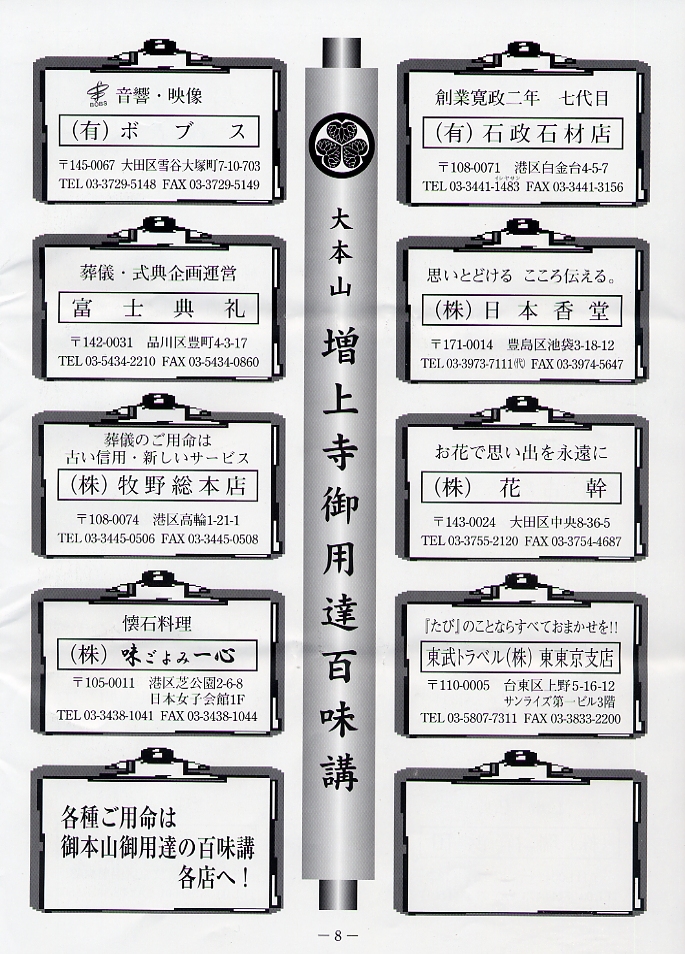 創業寛政二年 七代目
(有)石政石材店
〒108-0071 港区白金台4-5-7
イシヤサン
TEL 03-3441-1483 FAX 03-3441-3156
思いとどける こころ伝える。
(株)日本香堂
〒171-0014 豊島区池袋3-18-12
TEL 03-3973-7111㈹ FAX 03-3974-5647
お花で思い出を永遠に
(株) 花 幹
〒143-0024 大田区中央8-36-5
TEL 03-3755-2120 FAX 03-3754-4687
『たび』のことならすべておまかせを!!
東武トラベル(株)東東京支店
〒110-0005 台東区上野5-16-12
サンライズ第一ビル3階
TEL 03-5807-7311 FAX 03-3833-2200
大本山 増上寺御用達百味講
BOBS
音響・映像
(有)ボブス
〒145-0067 大田区雪谷大塚町7-10-703
TEL 03-3729-5148 FAX 03-3729-5149
葬儀・式典企画運営
富士典礼
〒142-0031 品川区豊町4-3-17
TEL 03-5434-2210 FAX 03-5434-0860
葬儀のご用命は
古い信用・新しいサービス
(株)牧野総本店
〒108-0074 港区高輪1-21-1
TEL 03-3445-0506 FAX 03-3445-0508
懐石料理
(株)味ごよみ一心
〒105-0011 港区芝公園2-6-8
日本女子会館1F
TEL 03-3438-1041 FAX 03-3438-1044
各種ご用命は
御本山御用達の百味講
各店へ!
― 8 ―